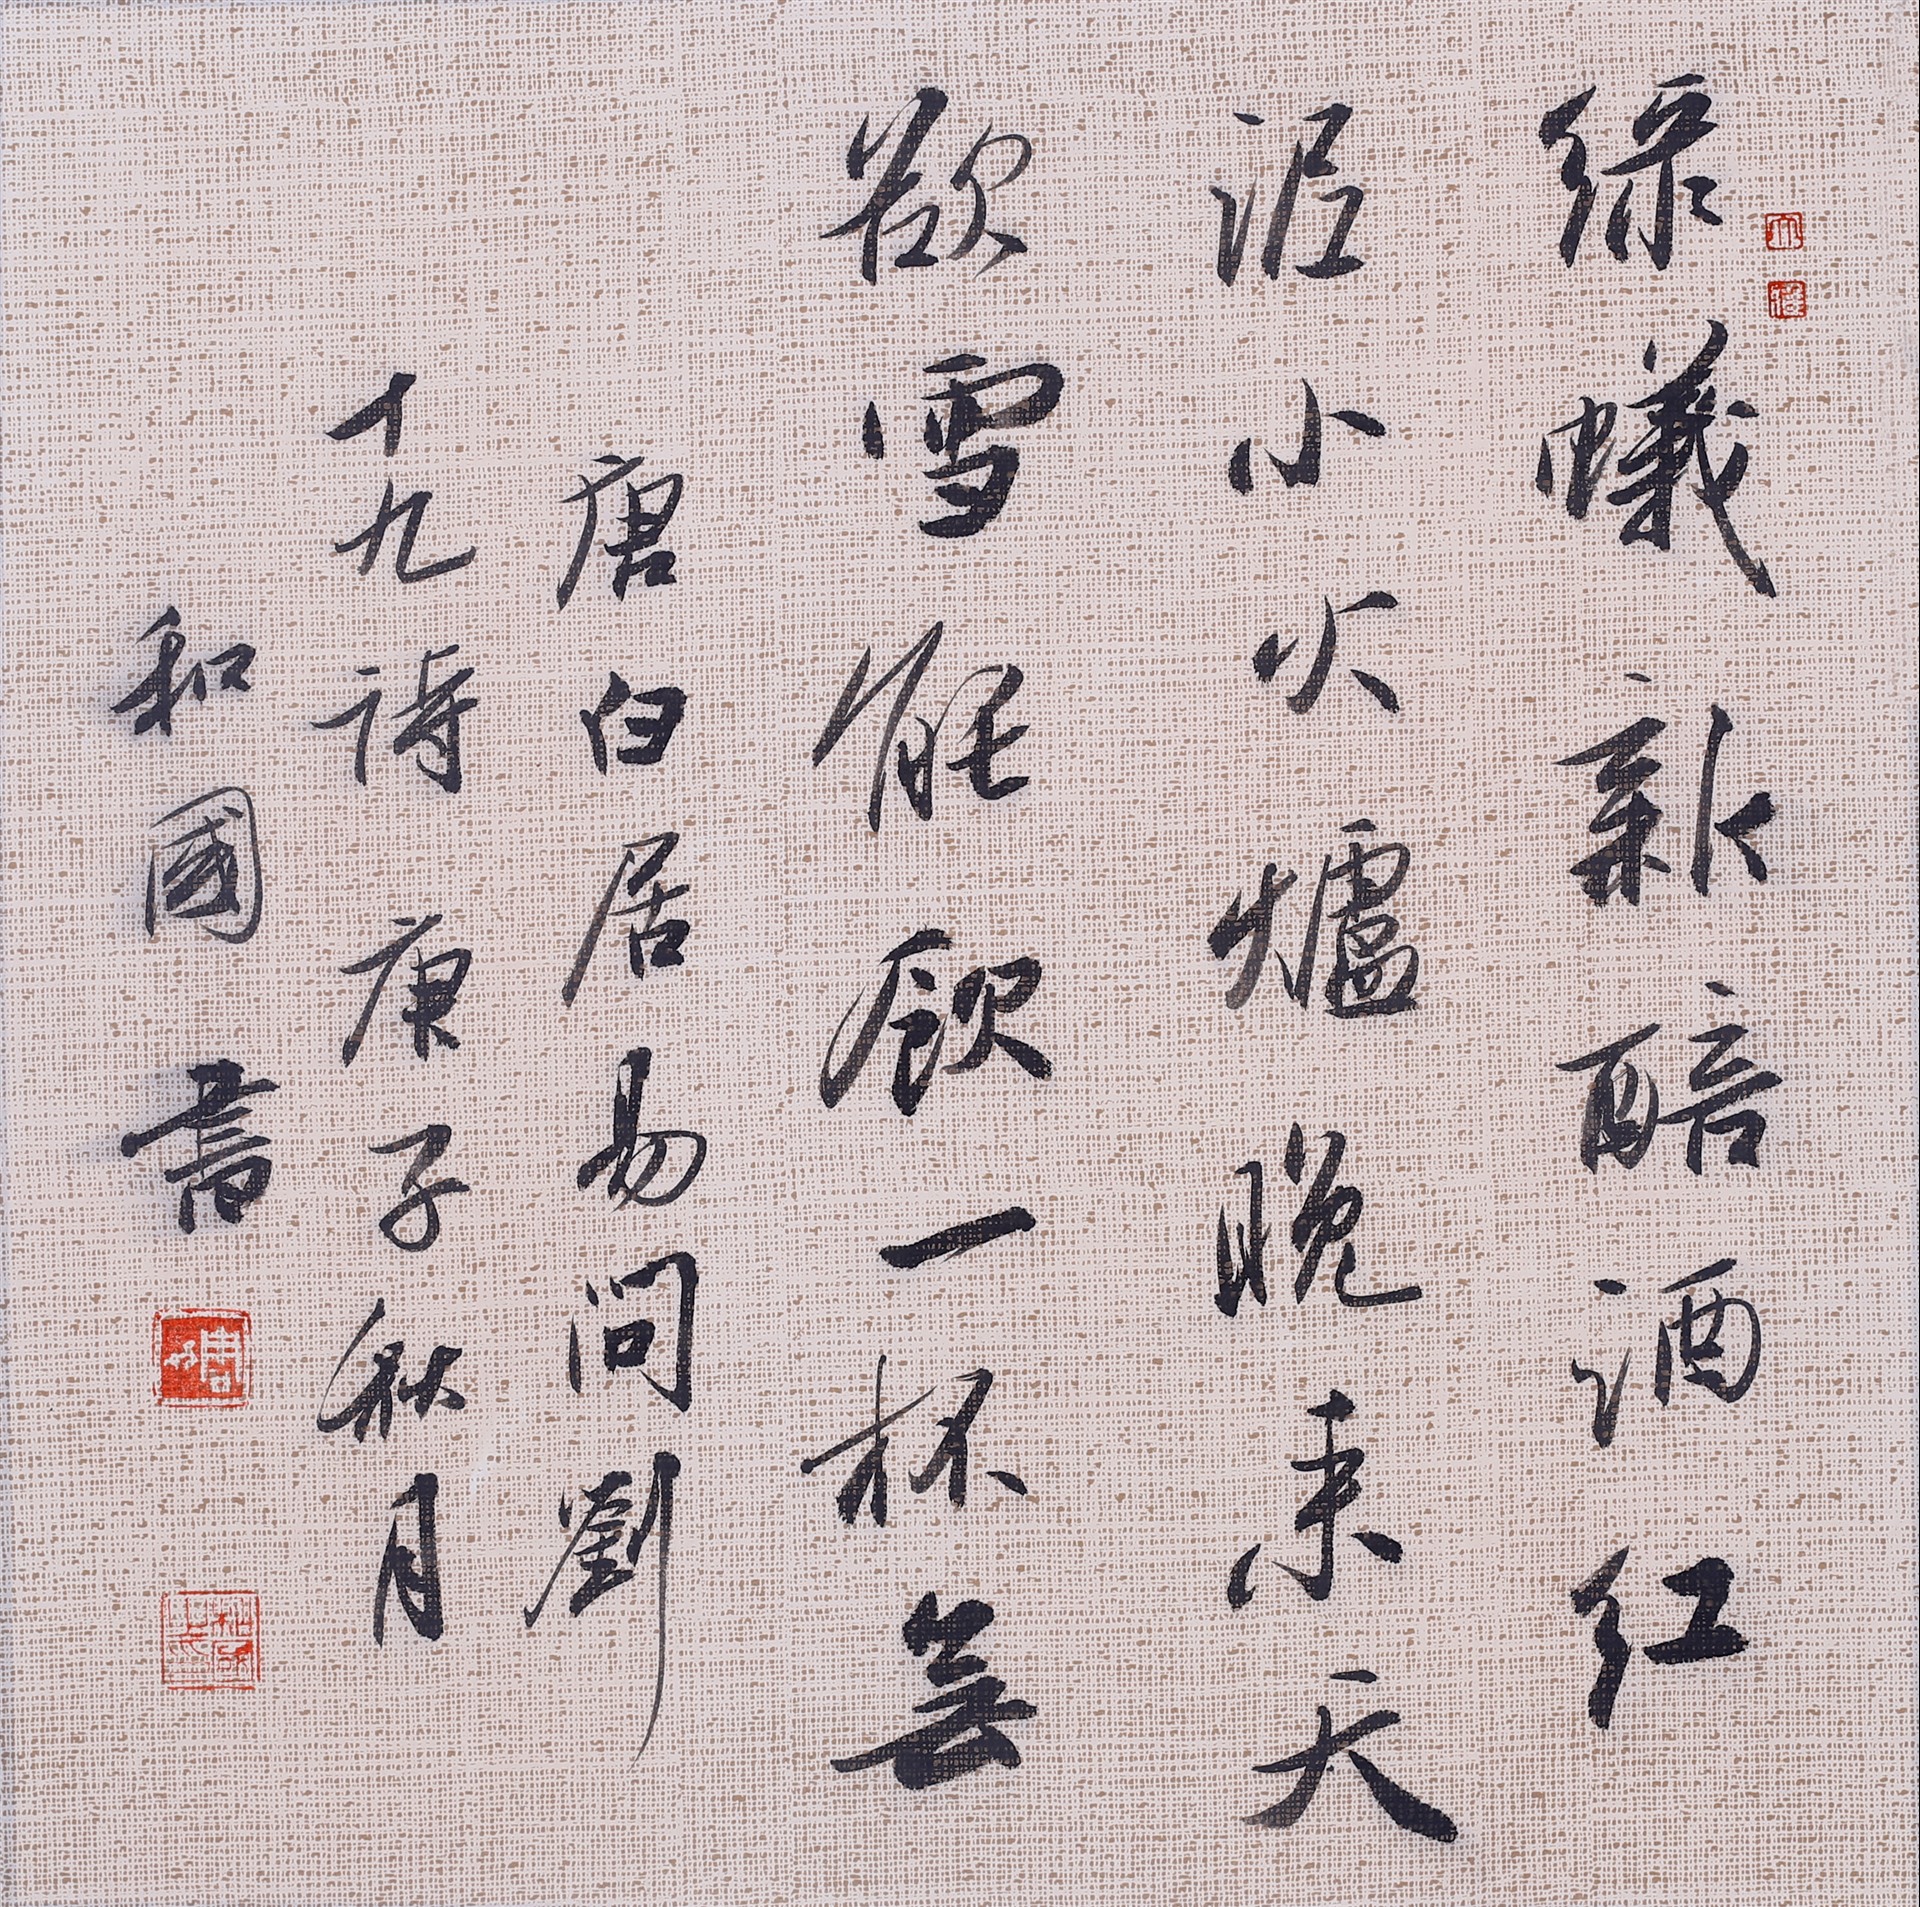 綠蟻新醅酒红
泥小火爐晚来天
欲雪能飲一杯無
唐白居易问劉
十九詩庚子秋月
和國書